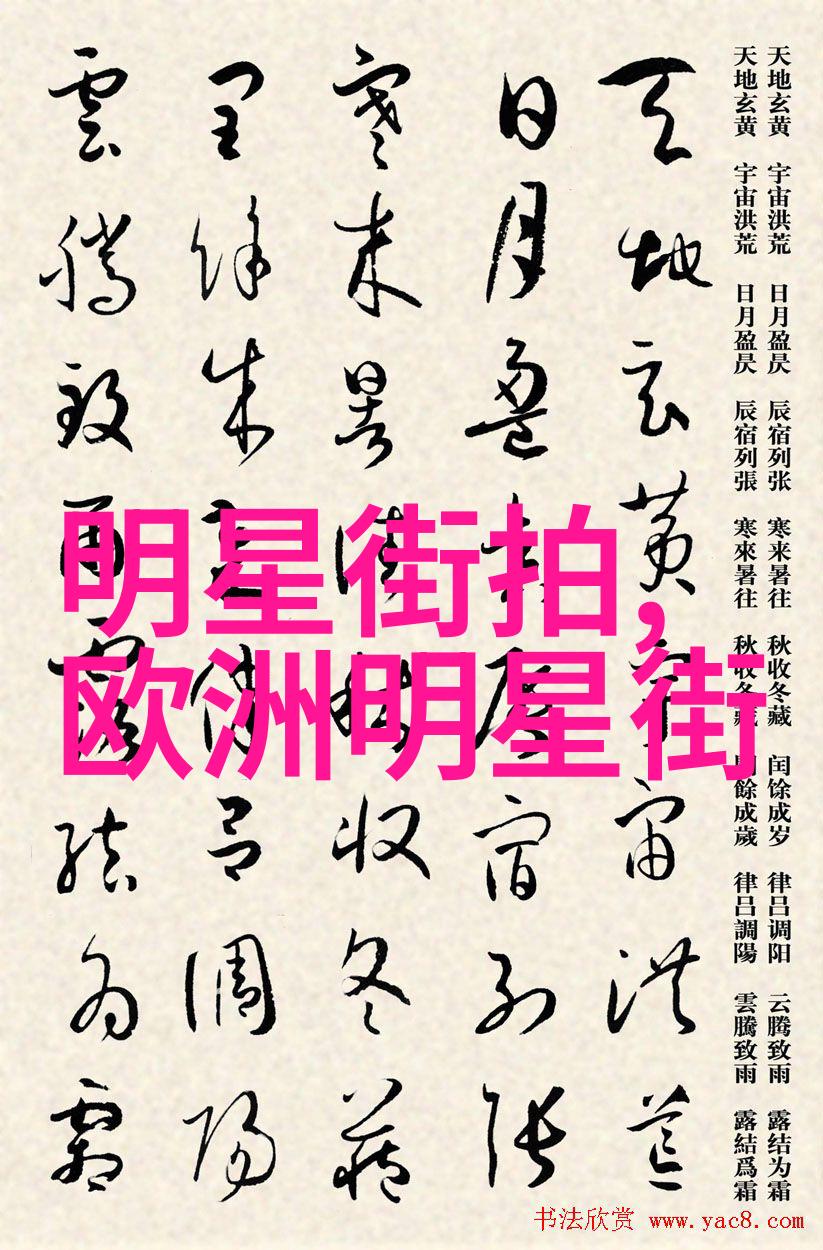 天地玄黄 宇宙洪荒 日月盈昃 辰宿列张 寒来暑往 秋收冬藏 闰馀成岁 律吕调阳 云腾致雨 露结为霜
天地玄黄 宇宙洪荒 日月盈昃 辰宿列張 寒來暑往 秋收冬藏 閏餘成歲 律吕調陽 雲騰致雨 露結爲霜
天地玄黄宇宙洪荒
日月盈昃辰宿列張
寒来暑往秋收冬藏
閏餘成歲律吕調陽
雲騰致雨露結為霜
明星街拍,
欧洲明星街
书法欣赏 www.yac8.com